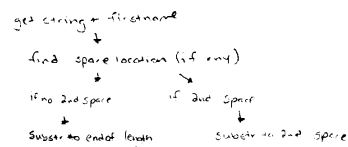 get string + firstname
find space location (if any)
if no 2nd space
if 2nd space
substr to end of length
substr to 2nd space